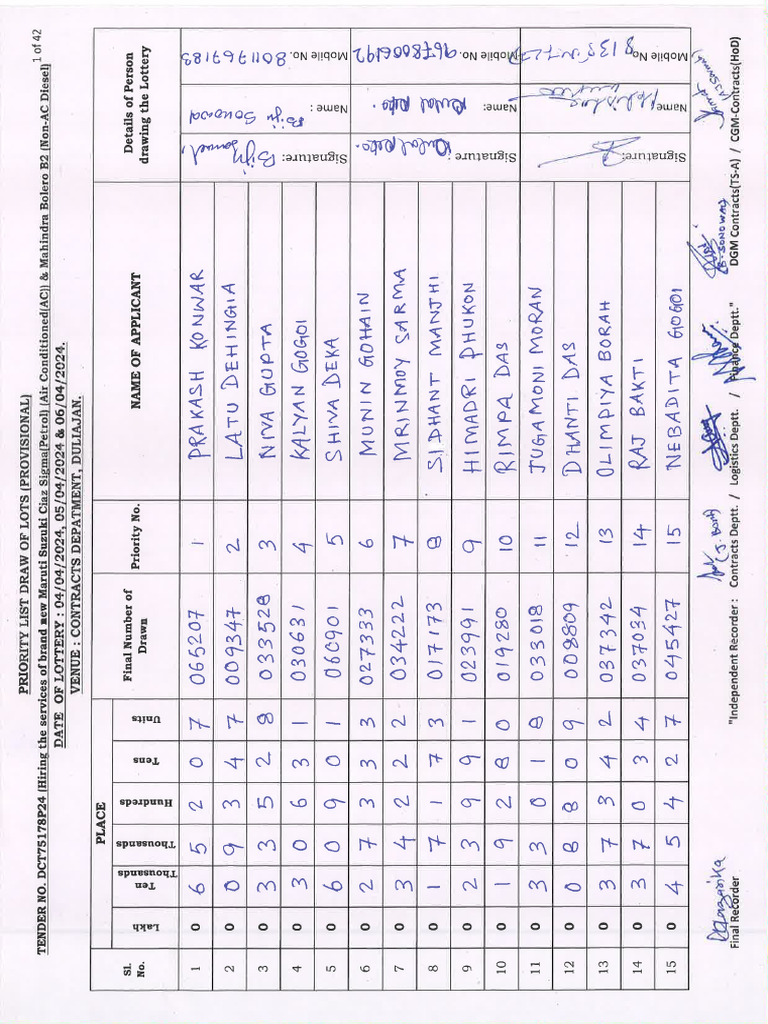 1 of 42
PRIORITY LIST DRAW OF LOTS (PROVISIONAL)
TENDER NO. DCT75178P24 (Hiring the services of brand new Maruti Suzuki Ciaz Sigma(Petrol) (Air Conditioned(AC)) & Mahindra Bolero B2 (Non-AC Diesel)
DATE OF LOTTERY : 04/04/2024, 05/04/2024 & 06/04/2024.
VENUE : CONTRACTS DEPATMENT, DULIAJAN.
Sl. No. PLACE Final Number of Drawn Priority No. NAME OF APPLICANT Details of Person drawing the Lottery
Lakh Ten Thousands Thousands Hundreds Tens Units
1 0 6 5 2 0 7 065207 1 PRAKASH KONWAR
2 0 0 9 3 4 7 009347 2 LATU DEHINGIA
3 0 3 3 5 2 8 033528 3 NIVA GUPTA
4 0 3 0 6 3 1 030631 4 KALYAN GOGOI
5 0 6 0 9 0 1 060901 5 SHIVA DEKA
Signature: Biju Sonowal
Name : Biju Sonowal
Mobile No. 8011767183
6 0 2 7 3 3 3 027333 6 MUNIN GOHAIN
7 0 3 4 2 2 2 034222 7 MRINMOY SARMA
8 0 1 7 1 7 3 017173 8 SIDHANT MANJHI
9 0 2 3 9 9 1 023991 9 HIMADRI PHUKON
10 0 1 9 2 8 0 019280 10 RIMPA DAS
Signature
Name:
Mobile No. 9678006192
11 0 3 3 0 1 8 033018 11 JUGAMONI MORAN
12 0 0 8 8 0 9 008809 12 DHANTI DAS
13 0 3 7 3 4 2 037342 13 OLIMPIYA BORAH
14 0 3 7 0 3 4 037034 14 RAJ BAKTI
15 0 4 5 4 2 7 045427 15 NEBADITA GOGOI
Signature:
Name
Mobile No.
Hazarika (J. Borah) (B. SONOWAL) (A J Sarmah)
Final Recorder "Independent Recorder : Contracts Deptt. / Logistics Deptt. / Finance Deptt." DGM Contracts(TS-A) / CGM-Contracts(HoD)